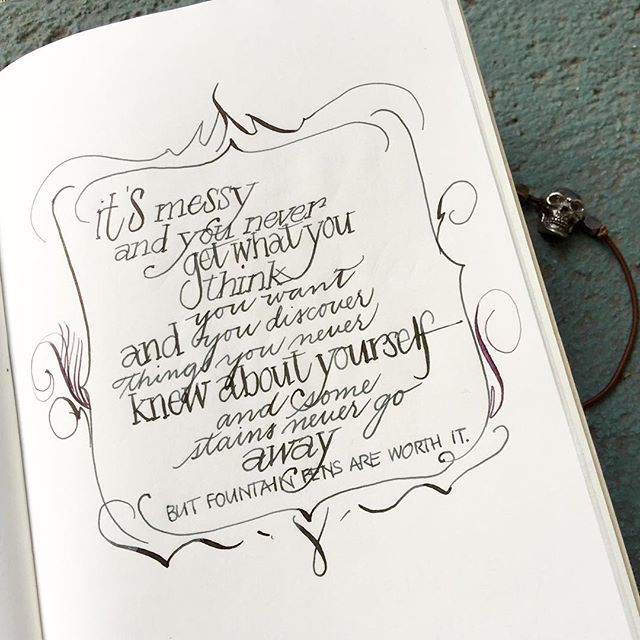 it's messy
and you never
get what you
think
you want
and you discover
things you never
knew about yourself
and some
stains never go
away
BUT FOUNTAIN PENS ARE WORTH IT.